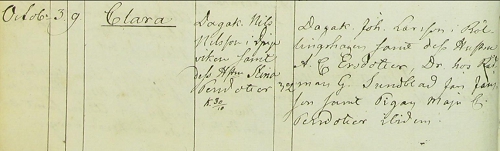 Octob. 3. 9. Clara
Dagak. Nils
Nilsson i
viken samt
dess Hstru Stina
Persdotter
K 30/10
32
Dagak. Joh. Larsson i Röl-
lingshagen samt dess Hustru
A. C. Ersdotter, Dr. hos
man G. Sundblad Jan Jans-
son samt Pigan Maja
Persdotter ibidem.